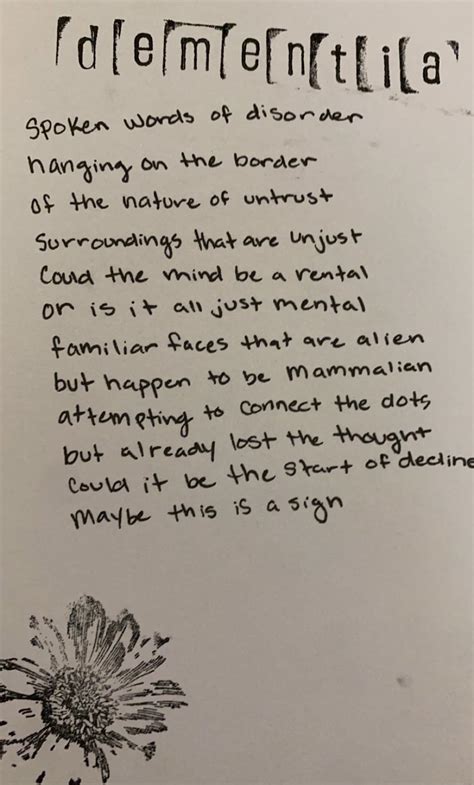 dementia
Spoken words of disorder
hanging on the border
of the nature of untrust
Surroundings that are unjust
Could the mind be a rental
or is it all just mental
familiar faces that are alien
but happen to be mammalian
attempting to connect the dots
but already lost the thought
Could it be the start of decline
Maybe this is a sign